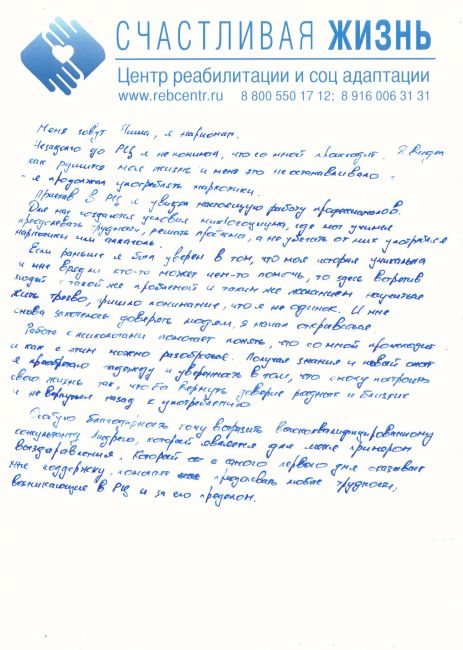 СЧАСТЛИВАЯ ЖИЗНЬ
Центр реабилитации и соц адаптации
www.rebcentr.ru 8 800 550 17 12; 8 916 006 31 31
Меня зовут Миша, я наркоман.
Незадолго до РЦ я не понимал, что со мной происходит. Я видел
как рушится моя жизнь и меня это не останавливало -
- я продолжал употреблять наркотики.
Приехав в РЦ я увидел настоящую работу профессионалов.
Для нас создаются условия микросоциума, где мы учимся
преодолевать трудности, решать проблемы, а не убегать от них употребляя
наркотики или алкоголь.
Если раньше я был уверен в том, что моя история уникальна
и мне вряди кто-то может чем-то помочь, то здесь встретив
людей с такой же проблемой и таким же желанием научиться
жить трезво, пришло понимание, что я не одинок. И мне
снова захотелось доверять людям, я начал открываться
Работа с психологами помогает понять, что со мной происходит
и как с этим можно разобраться. Получая знания и новый опыт
я приобретаю надежду и уверенность в том, что смогу построить
свою жизнь так, чтобы вернуть доверие родных и близких
и не вернуться назад к употреблению
Особую благодарность хочу выразить высококвалифицированному
консультанту Андрею, который является для меня примером
выздоравления. Который с самого первого дня оказывает
мне поддержку, помогает преодолевать любые трудности,
возникающие в РЦ и за его пределом.